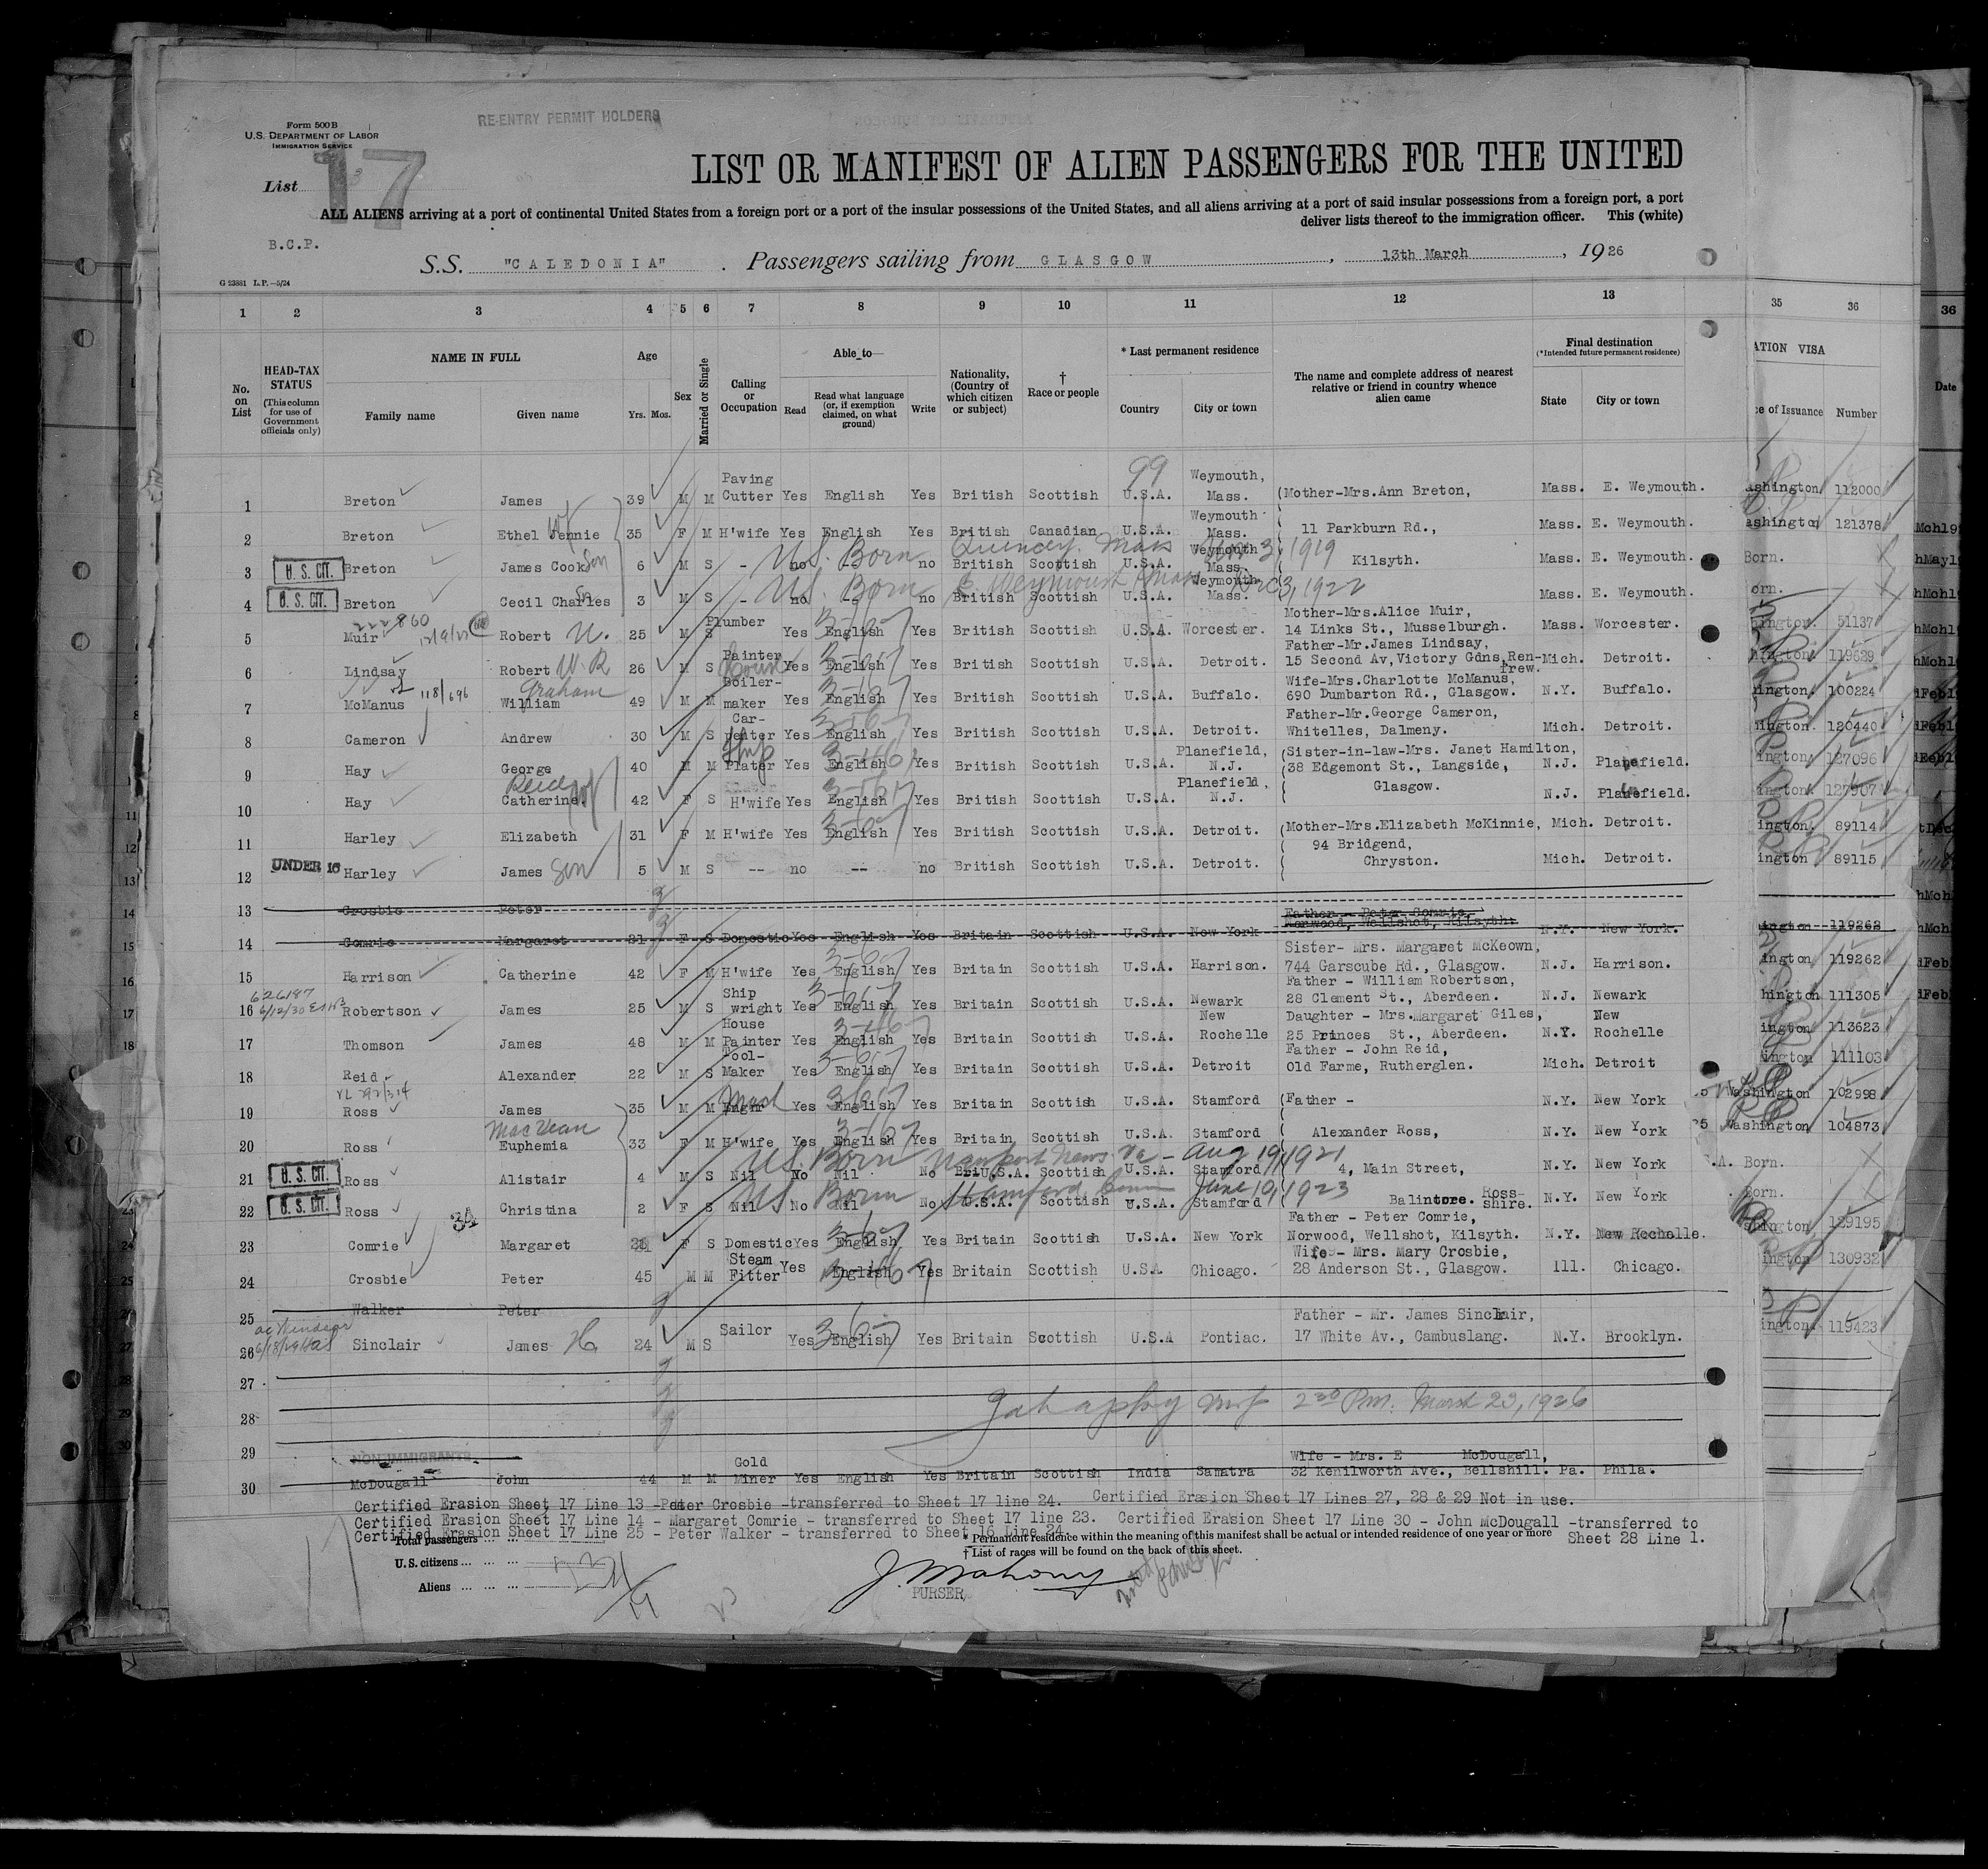 Form 500 B
U.S. DEPARTMENT OF LABOR
IMMIGRATION SERVICE
RE-ENTRY PERMIT HOLDERS
List 17
LIST OR MANIFEST OF ALIEN PASSENGERS FOR THE UNITED
ALL ALIENS arriving at a port of continental United States from a foreign port or a port of the insular possessions of the United States, and all aliens arriving at a port of said insular possessions from a foreign port, a port
deliver lists thereof to the immigration officer. This (white)
B.C.P.
S.S. "CALEDONIA" . Passengers sailing from GLASGOW , 13th March , 1926
G 23881 L.P.—5/24
1 2 3 4 5 6 7 8 9 10 11 12 13 35 36 36
No. on List
HEAD-TAX STATUS (This column for use of Government officials only)
NAME IN FULL
Family name Given name
Age Yrs. Mos.
Sex
Married or Single
Calling or Occupation
Able to—
Read Read what language (or, if exemption claimed, on what ground) Write
Nationality, (Country of which citizen or subject)
† Race or people
* Last permanent residence
Country City or town
The name and complete address of nearest relative or friend in country whence alien came
Final destination
(*Intended future permanent residence)
State City or town
ATION VISA
ce of Issuance Number
Date
99
1 Breton James 39 M M Paving Cutter Yes English Yes British Scottish U.S.A. Weymouth, Mass. (Mother-Mrs.Ann Breton, Mass. E. Weymouth. ashington 112000
2 Breton Ethel Jennie wf 35 F M H'wife Yes English Yes British Canadian U.S.A. Weymouth Mass. 11 Parkburn Rd., Mass. E. Weymouth. ashington 121378
3 U.S. CIT. Breton James Cook Son 6 M S - no - no British Scottish U.S.A. Weymouth Mass. Kilsyth. Mass. E. Weymouth. Born.
U.S. Born Quincy. Mass 3, 1919
4 U.S. CIT. Breton Cecil Charles Sn 3 M S - no - no British Scottish U.S.A. Weymouth Mass. Mass. E. Weymouth. orn.
U.S. Born E. Weymouth Mass 3, 1922
222860 12/9/27
5 Muir Robert 25 M S Plumber Yes English Yes British Scottish U.S.A. Worcester. Mother-Mrs.Alice Muir, 14 Links St., Musselburgh. Mass. Worcester. hington. 51137
6 Lindsay Robert W.R 26 M S Painter Yes English Yes British Scottish U.S.A. Detroit. Father-Mr.James Lindsay, 15 Second Av,Victory Gdns,Ren-frew. Mich. Detroit. hington 119629
7 McManus 118/696 William Graham 49 M M Boiler-maker Yes English Yes British Scottish U.S.A. Buffalo. Wife-Mrs.Charlotte McManus, 690 Dumbarton Rd., Glasgow. N.Y. Buffalo. hington. 100224
8 Cameron Andrew 30 M S Car-penter Yes English Yes British Scottish U.S.A. Detroit. Father-Mr.George Cameron, Whitelles, Dalmeny. Mich. Detroit. ington. 120440
9 Hay George 40 M M Ship Plater Yes English Yes British Scottish U.S.A. Planefield, N.J. (Sister-in-law-Mrs. Janet Hamilton, (38 Edgemont St., Langside, N.J. Planefield. ington. 127096
10 Hay Catherine. Reid wf 42 F S H'wife Yes English Yes British Scottish U.S.A. Planefield, N.J. ( Glasgow. N.J. Planefield. ington. 127907
11 Harley Elizabeth 31 F M H'wife Yes English Yes British Scottish U.S.A. Detroit. (Mother-Mrs.Elizabeth McKinnie, Mich. Detroit. ington. 89114
( 94 Bridgend,
12 UNDER 16 Harley James Son 5 M S -- no -- no British Scottish U.S.A. Detroit. ( Chryston. Mich. Detroit. ington 89115
13 Crosbie Peter
Father - Peter Comrie, Norwood, Wellshot, Kilsyth.
14 Comrie Margaret 31 F S Domestic Yes English Yes Britain Scottish U.S.A. New York N.Y. New York. ington 119262
15 Harrison Catherine 42 F M H'wife Yes English Yes Britain Scottish U.S.A. Harrison. Sister- Mrs. Margaret McKeown, 744 Garscube Rd., Glasgow. N.J. Harrison. ington 119262
626187 6/12/30
16 Robertson James 25 M S Ship wright Yes English Yes Britain Scottish U.S.A. Newark Father - William Robertson, 28 Clement St., Aberdeen. N.J. Newark hington 111305
17 Thomson James 48 M M House Painter Yes English Yes Britain Scottish U.S.A. New Rochelle Daughter - Mrs.Margaret Giles, 25 Princes St., Aberdeen. N.Y. New Rochelle ington 113623
18 Reid Alexander 22 M S Tool-Maker Yes English Yes Britain Scottish U.S.A. Detroit Father - John Reid, Old Farme, Rutherglen. Mich. Detroit ington 111103
19 Ross James 35 M M Engr Yes English Yes Britain Scottish U.S.A. Stamford (Father - N.Y. New York Washington 102998
20 Ross Euphemia MacVean 33 F M H'wife Yes English Yes Britain Scottish U.S.A. Stamford Alexander Ross, N.Y. New York Washington 104873
U.S. Born Newport News Va - Aug 19, 1921
21 U.S. CIT. Ross Alistair 4 M S Nil No Nil No U.S.A. Scottish U.S.A. Stamford 4, Main Street, N.Y. New York .A. Born.
U.S Born Stamford Conn June 19, 1923
22 U.S. CIT. Ross Christina 2 F S Nil No Nil No U.S.A. Scottish U.S.A. Stamford Balintore. Ross-shire. N.Y. New York . Born.
23 Comrie 34 Margaret F S Domestic Yes English Yes Britain Scottish U.S.A. New York Father - Peter Comrie, Norwood, Wellshot, Kilsyth. N.Y. New Rochelle. shington 129195
24 Crosbie Peter 45 M M Steam Fitter Yes English Yes Britain Scottish U.S.A Chicago. Wife - Mrs. Mary Crosbie, 28 Anderson St., Glasgow. Ill. Chicago. ington 130932
25 Walker Peter
26 Sinclair James H. 24 M S Sailor Yes English Yes Britain Scottish U.S.A Pontiac. Father - Mr. James Sinclair, 17 White Av., Cambuslang. N.Y. Brooklyn. ington. 119423
27
28
2 30 P.m. March 23, 1926
29
NON IMMIGRANTS
30 McDougall John 44 M M Gold Miner Yes English Yes Britain Scottish India Samatra Wife - Mrs. E McDougall, 32 Kenilworth Ave., Bellshill. Pa. Phila.
Certified Erasion Sheet 17 Line 13 -Peter Crosbie -transferred to Sheet 17 line 24. Certified Erasion Sheet 17 Lines 27, 28 & 29 Not in use.
Certified Erasion Sheet 17 Line 14 - Margaret Comrie - transferred to Sheet 17 line 23. Certified Erasion Sheet 17 Line 30 - John McDougall -transferred to Sheet 28 Line 1.
Certified Erasion Sheet 17 Line 25 - Peter Walker - transferred to Sheet 16 Line 24.
Total passengers
* Permanent residence within the meaning of this manifest shall be actual or intended residence of one year or more
U.S. citizens
† List of races will be found on the back of this sheet.
Aliens
J. Mahony
PURSER